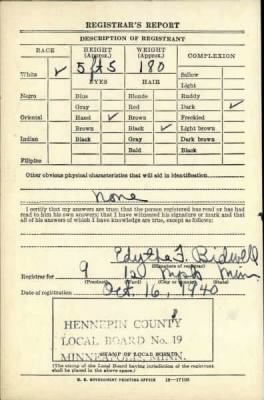 REGISTRAR'S REPORT
DESCRIPTION OF REGISTRANT
RACE HEIGHT (Approx.) WEIGHT (Approx.) COMPLEXION
White ✓ 5 ft 5 180 Sallow
EYES HAIR Light
Negro Blue Blonde Ruddy
Gray Red Dark ✓
Oriental Hazel ✓ Brown Freckled
Brown Black ✓ Light brown
Indian Black Gray Dark brown
Bald Black
Filipino
Other obvious physical characteristics that will aid in identification
None
I certify that my answers are true; that the person registered has read or has had
read to him his own answers; that I have witnessed his signature or mark and that
all of his answers of which I have knowledge are true, except as follows:
Edythe F. Bidwell
(Signature of registrar)
Registrar for 9 12 Mpls Minn
(Precinct) (Ward) (City or county) (State)
Date of registration Oct. 16, 1940
HENNEPIN COUNTY
LOCAL BOARD No. 19
MINNEAPOLIS, MINN.
(STAMP OF LOCAL BOARD)
(The stamp of the Local Board having jurisdiction of the registrant
shall be placed in the above space.)
U. S. GOVERNMENT PRINTING OFFICE 16—17105